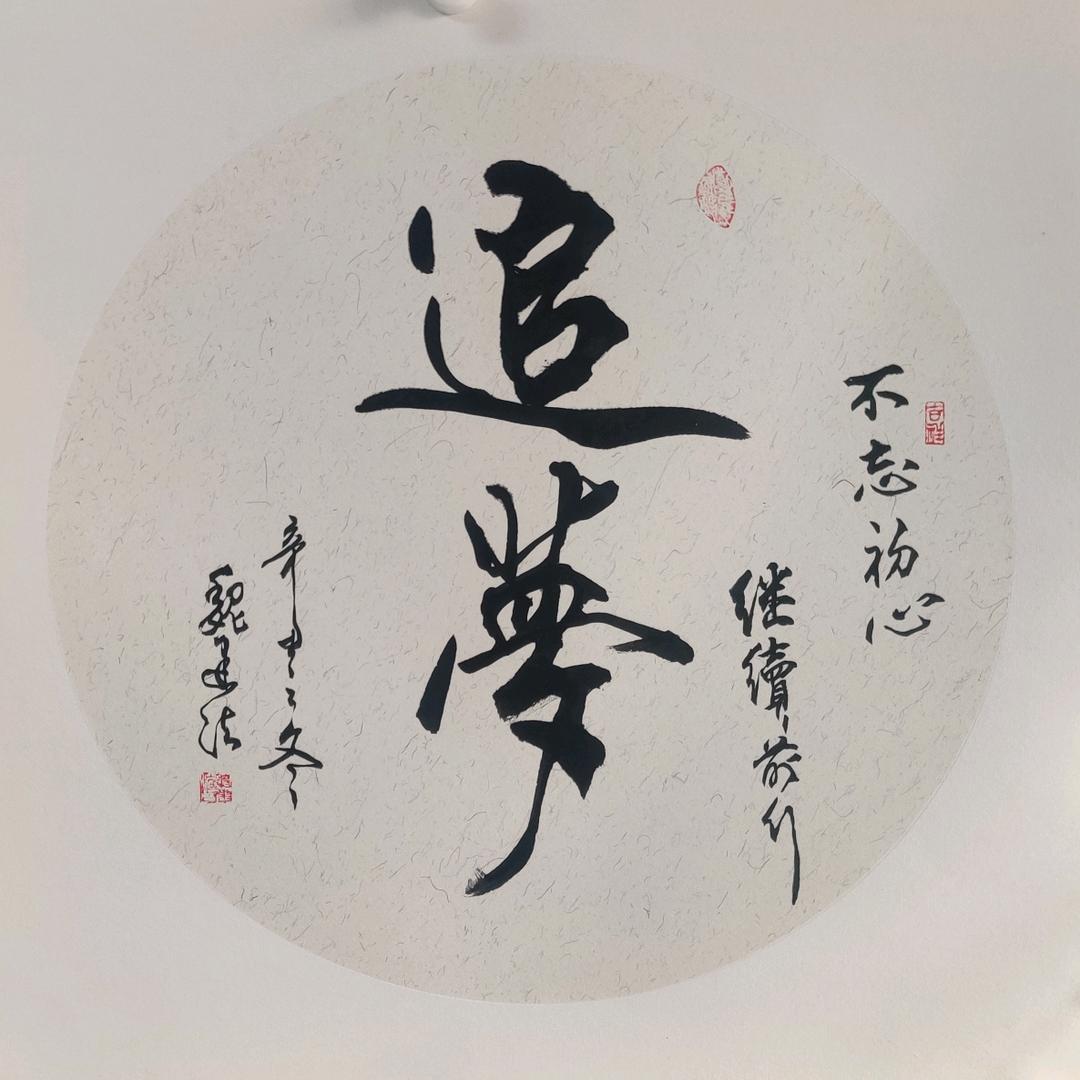 不忘初心
继續前行
追夢
辛丑之冬
魏建法
吉祥